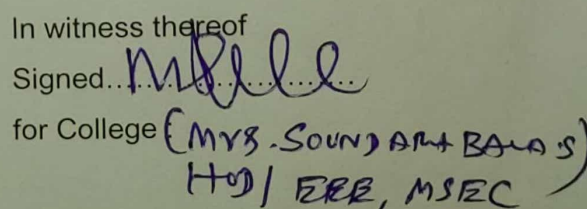 In witness thereof
Signed....................
for College (Mrs. SOUNDARA BALA.S)
HOD/ EEE, MSEC